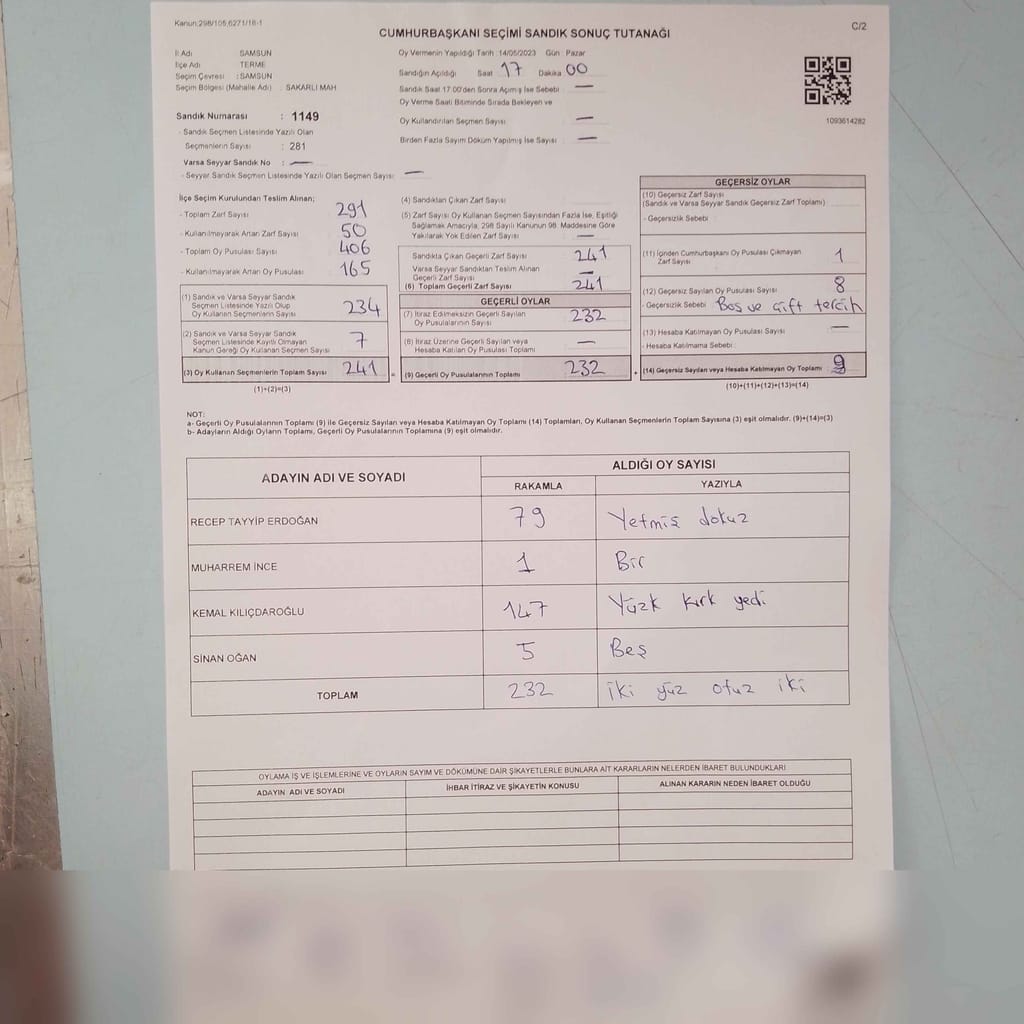 Kanun:298/105,6271/18-1
C/2
CUMHURBAŞKANI SEÇİMİ SANDIK SONUÇ TUTANAĞI
İl Adı SAMSUN
İlçe Adı TERME
Seçim Çevresi : SAMSUN
Seçim Bölgesi (Mahalle Adı) : SAKARLI MAH
Sandık Numarası : 1149
- Sandık Seçmen Listesinde Yazılı Olan
Seçmenlerin Sayısı : 281
Varsa Seyyar Sandık No : —
- Seyyar Sandık Listesinde Yazılı Olan Seçmen Sayısı —
Oy Vermenin Yapıldığı Tarih :14/05/2023 Gün : Pazar
Sandığın Açıldığı Saat 17 Dakika 00
Sandık Saat 17.00'den Sonra Açılmış İse Sebebi : —
Oy Verme Saati Bitiminde Sırada Bekleyen ve
Oy Kullandırılan Seçmen Sayısı : —
Birden Fazla Sayım Döküm Yapılmış İse Sayısı : —
1093614282
İlçe Seçim Kurulundan Teslim Alınan;
- Toplam Zarf Sayısı 291
- Kullanılmayarak Artan Zarf Sayısı 50
- Toplam Oy Pusulası Sayısı 406
- Kullanılmayarak Artan Oy Pusulası 165
(1) Sandık ve Varsa Seyyar Sandık
Seçmen Listesinde Yazılı Olup
Oy Kullanan Seçmenlerin Sayısı 234
(2) Sandık ve Varsa Seyyar Sandık
Seçmen Listesinde Kayıtlı Olmayan
Kanun Gereği Oy Kullanan Seçmen Sayısı 7
(3) Oy Kullanan Seçmenlerin Toplam Sayısı 241
(1)+(2)=(3)
(4) Sandıktan Çıkan Zarf Sayısı
(5) Zarf Sayısı Oy Kullanan Seçmen Sayısından Fazla İse, Eşitliği
Sağlamak Amacıyla, 298 Sayılı Kanunun 98. Maddesine Göre
Yakılarak Yok Edilen Zarf Sayısı —
Sandıkta Çıkan Geçerli Zarf Sayısı 241
Varsa Seyyar Sandıktan Teslim Alınan
Geçerli Zarf Sayısı —
(6) Toplam Geçerli Zarf Sayısı 241
GEÇERLİ OYLAR
(7) İtiraz Edilmeksizin Geçerli Sayılan
Oy Pusulalarının Sayısı 232
(8) İtiraz Üzerine Geçerli Sayılan veya
Hesaba Katılan Oy Pusulası Toplamı —
(9) Geçerli Oy Pusulalarının Toplamı 232
GEÇERSİZ OYLAR
(10) Geçersiz Zarf Sayısı
(Sandık ve Varsa Seyyar Sandık Geçersiz Zarf Toplamı)
- Geçersizlik Sebebi :
(11) İçinden Cumhurbaşkanı Oy Pusulası Çıkmayan
Zarf Sayısı 1
(12) Geçersiz Sayılan Oy Pusulası Sayısı 8
- Geçersizlik Sebebi Boş ve çift tercih
(13) Hesaba Katılmayan Oy Pusulası Sayısı —
- Hesaba Katılmama Sebebi :
(14) Geçersiz Sayılan veya Hesaba Katılmayan Oy Toplamı 9
(10)+(11)+(12)+(13)=(14)
NOT:
a- Geçerli Oy Pusulalarının Toplamı (9) ile Geçersiz Sayılan veya Hesaba Katılmayan Oy Toplamı (14) Toplamları, Oy Kullanan Seçmenlerin Toplam Sayısına (3) eşit olmalıdır. (9)+(14)=(3)
b- Adayların Aldığı Oyların Toplamı, Geçerli Oy Pusulalarının Toplamına (9) eşit olmalıdır.
ADAYIN ADI VE SOYADI ALDIĞI OY SAYISI
RAKAMLA YAZIYLA
RECEP TAYYİP ERDOĞAN 79 Yetmiş dokuz
MUHARREM İNCE 1 Bir
KEMAL KILIÇDAROĞLU 147 Yüzk kırk yedi
SİNAN OĞAN 5 Beş
TOPLAM 232 iki yüz otuz iki
OYLAMA İŞ VE İŞLEMLERİNE VE OYLARIN SAYIM VE DÖKÜMÜNE DAİR ŞİKAYETLERLE BUNLARA AİT KARARLARIN NELERDEN İBARET BULUNDUKLARI
ADAYIN ADI VE SOYADI İHBAR İTİRAZ VE ŞİKAYETİN KONUSU ALINAN KARARIN NEDEN İBARET OLDUĞU